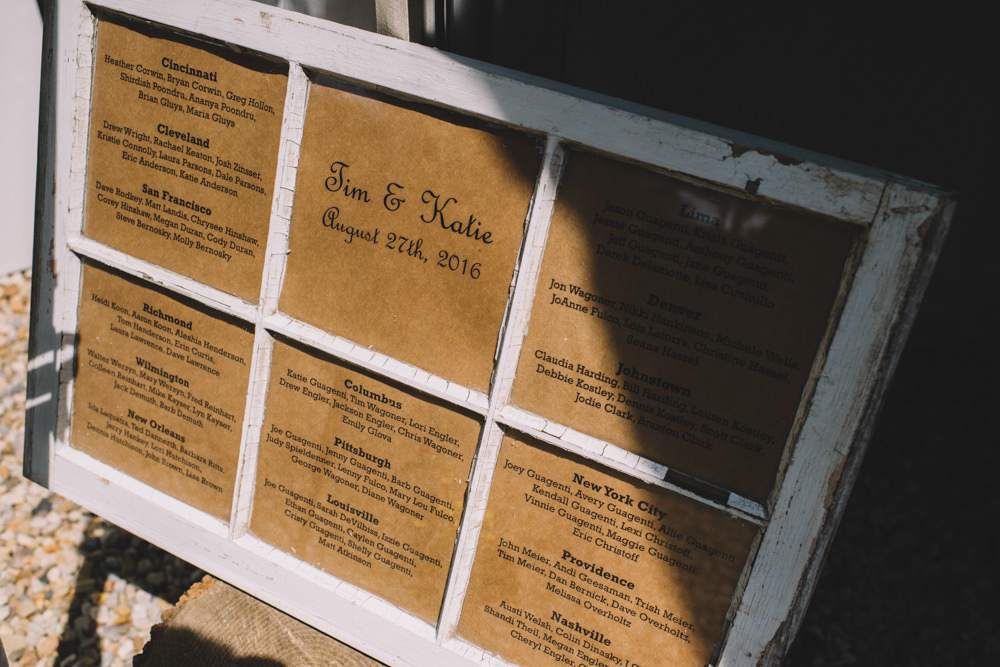 Cincinnati
Heather Corwin, Bryan Corwin, Greg Hollon,
Shirdish Poondru, Ananya Poondru,
Brian Gluys, Maria Gluys
Cleveland
Drew Wright, Rachael Keaton, Josh Zinsser,
Kristie Connolly, Laura Parsons, Dale Parsons,
Eric Anderson, Katie Anderson
San Francisco
Dave Rodkey, Matt Landis, Chrysee Hinshaw,
Corey Hinshaw, Megan Duran, Cody Duran,
Steve Bernosky, Molly Bernosky
Tim & Katie
August 27th, 2016
Lima
Jason Guagenti, Krista Guagenti,
Jessie Guagenti, Anthony Guagenti,
Jeff Guagenti, Jane Guagenti,
Derek Delamotte, Lisa
Denver
Jon Wagoner, Nikki Hankinson, Michele Weile,
JoAnne Fulco, Lois Latorra, Christine Hassel
Seana Hassel
Johnstown
Claudia Harding, Bill Harding, Lauren Kostley,
Debbie Kostley, Dennis Kostley, Scott Clark,
Jodie Clark, Braxton Clark
Richmond
Heidi Koon, Aaron Koon, Aleshia Henderson,
Tom Henderson, Erin Curtis,
Laura Lawrence, Dave Lawrence
Wilmington
Walter Werzyn, Mary Werzyn, Fred Reinhart,
Colleen Reinhart, Mike Keyser, Lyn Keyser,
Jack Demuth, Barb Demuth
New Orleans
Ted Dannerth, Barbara
Jerry Hankey, Lori Hutchison,
Dennis Hutchison, John Brown, Lisa Brown
Columbus
Katie Guagenti, Tim Wagoner, Lori Engler,
Drew Engler, Jackson Engler, Chris Wagoner,
Emily Glova
Pittsburgh
Joe Guagenti, Jenny Guagenti, Barb Guagenti,
Judy Speildenner, Lenny Fulco, Mary Lou Fulco,
George Wagoner, Diane Wagoner
Louisville
Joe Guagenti, Sarah DeVilbiss, Izzie Guagenti,
Ethan Guagenti, Caylen Guagenti,
Cristy Guagenti, Shelly Guagenti,
Matt Atkinson
New York City
Joey Guagenti, Avery Guagenti, Allie Guagenti
Kendall Guagenti, Lexi Christoff,
Vinnie Guagenti, Maggie Guagenti,
Eric Christoff
Providence
John Meier, Andi Geesaman, Trish Meier,
Tim Meier, Dan Bernick, Dave Overholtz,
Melissa Overholtz
Nashville
Austi Welsh, Colin Dinasky,
Shandi Theil, Megan Engler,
Cheryl Engler,